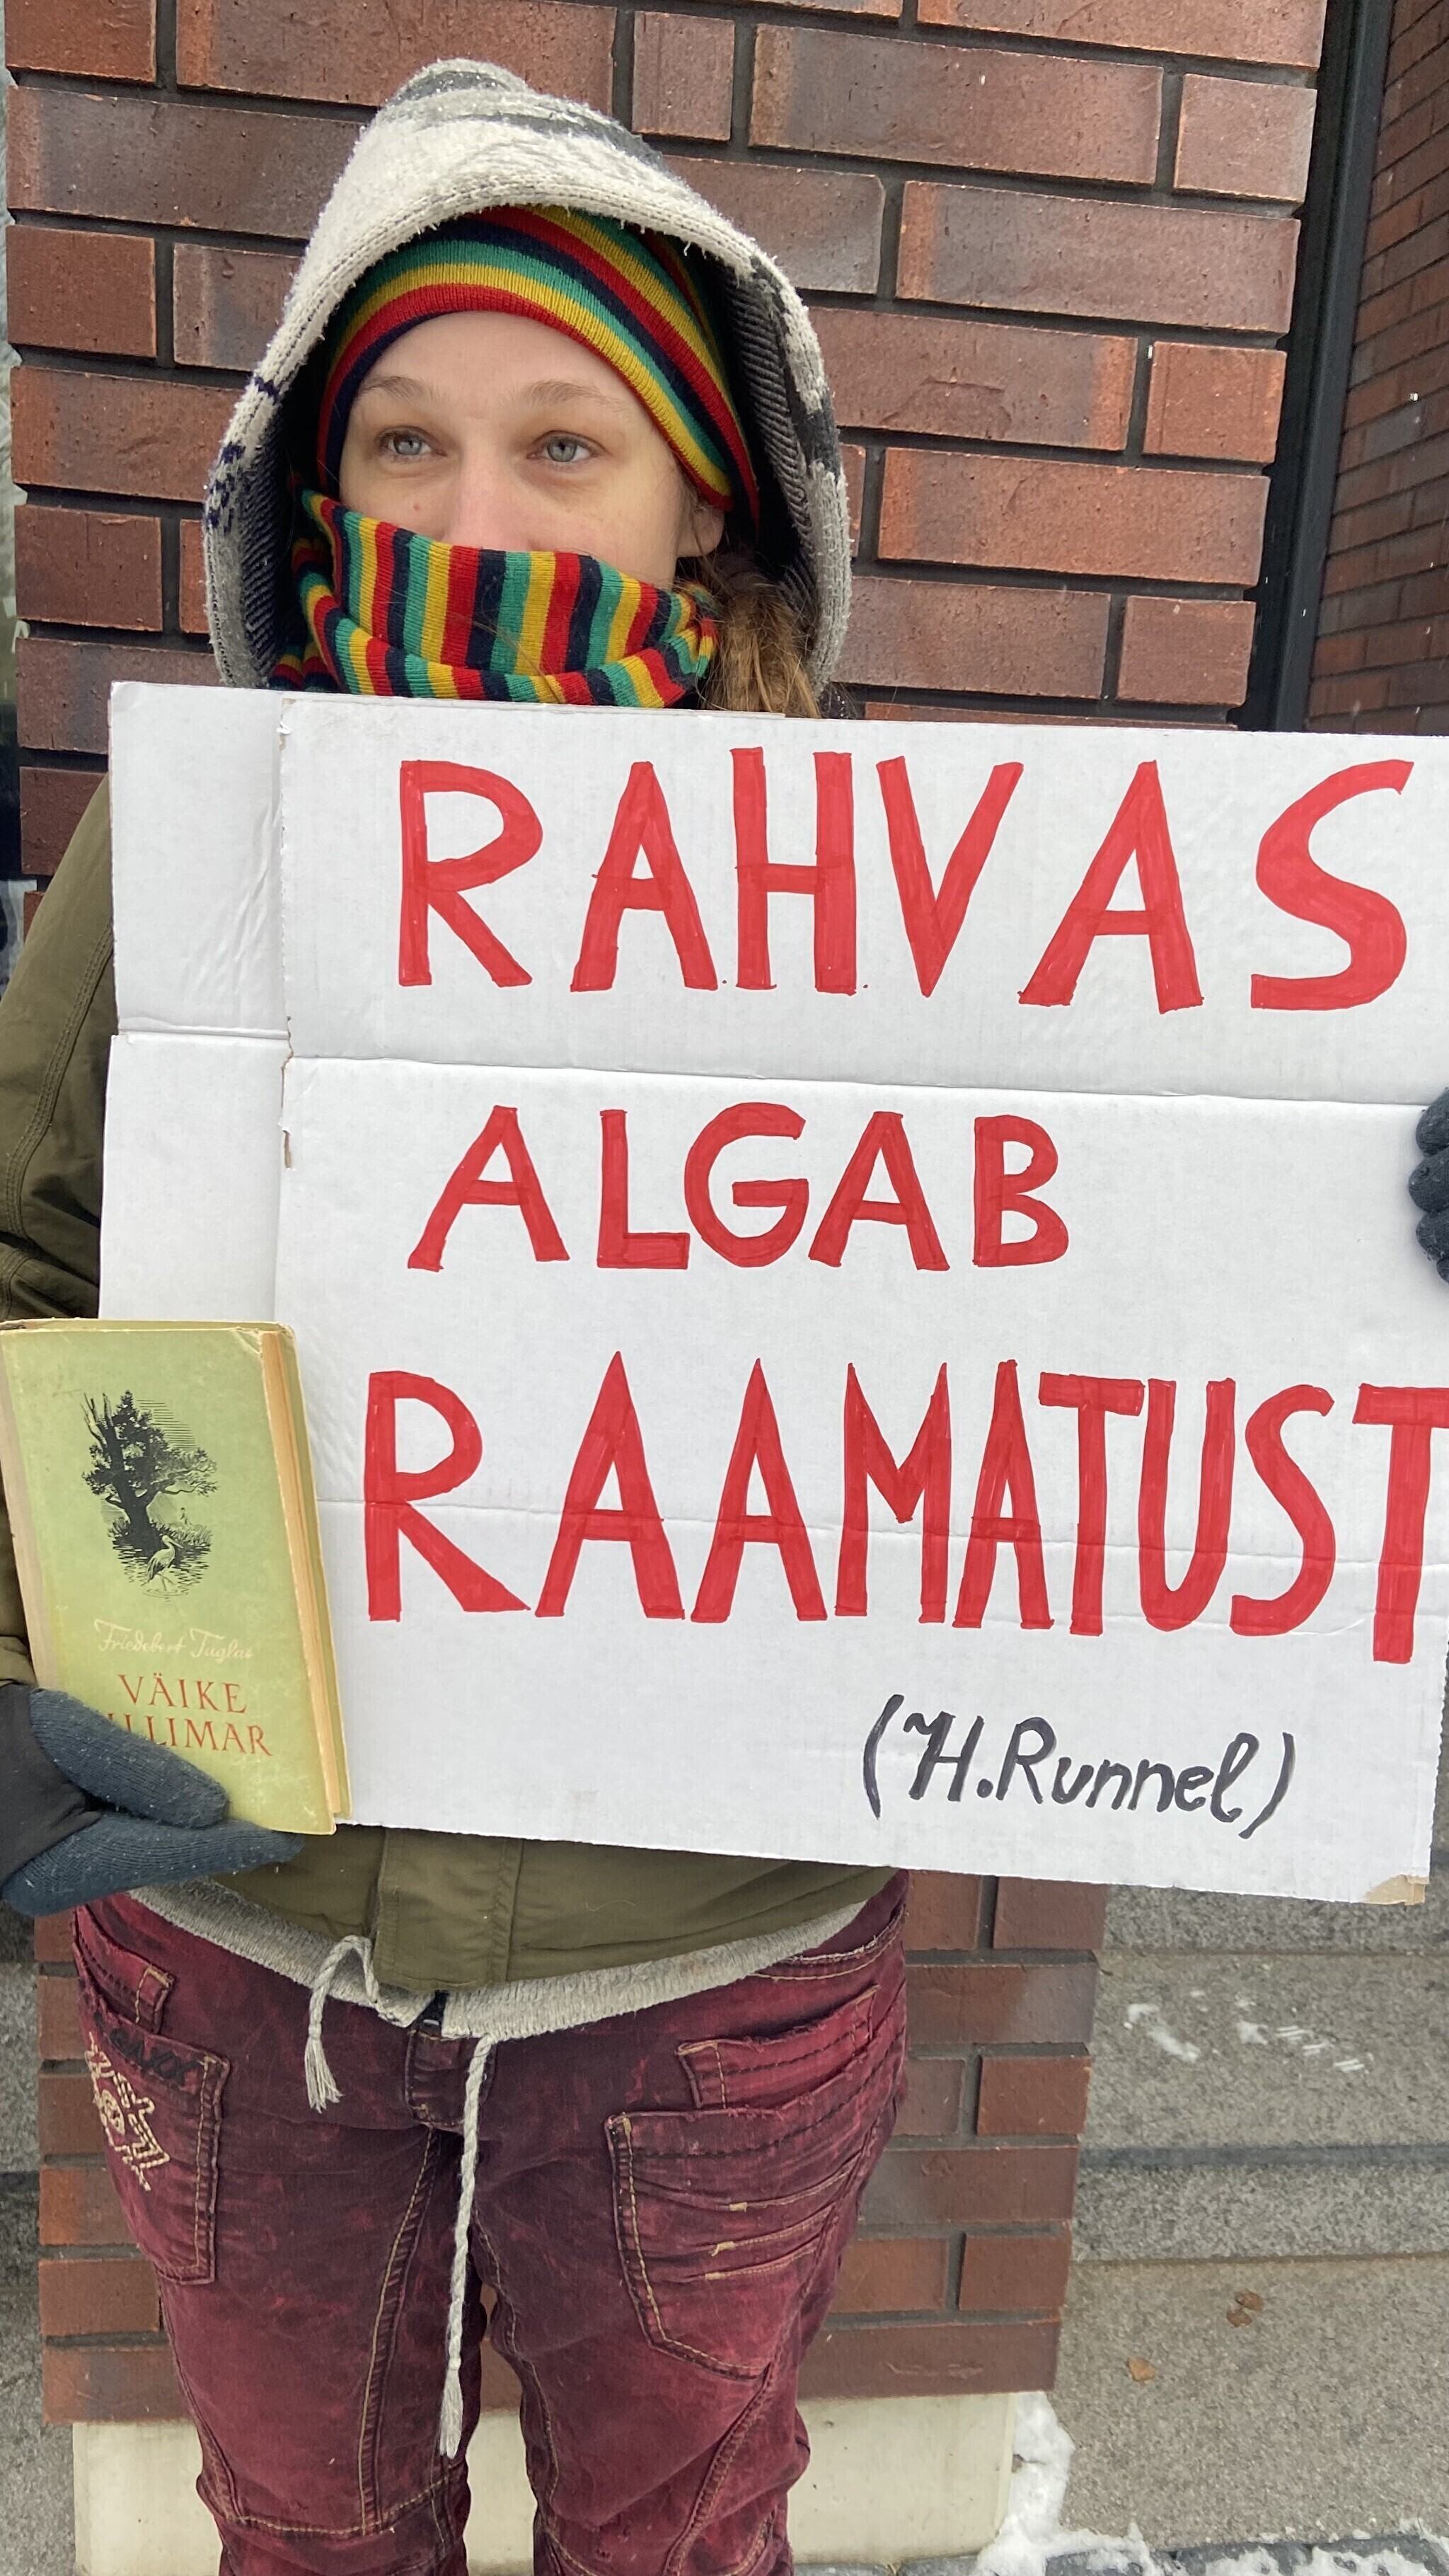 RAHVAS
ALGAB
RAAMATUST
(H. Runnel)
Friedebert Tuglas
VÄIKE
ILLIMAR